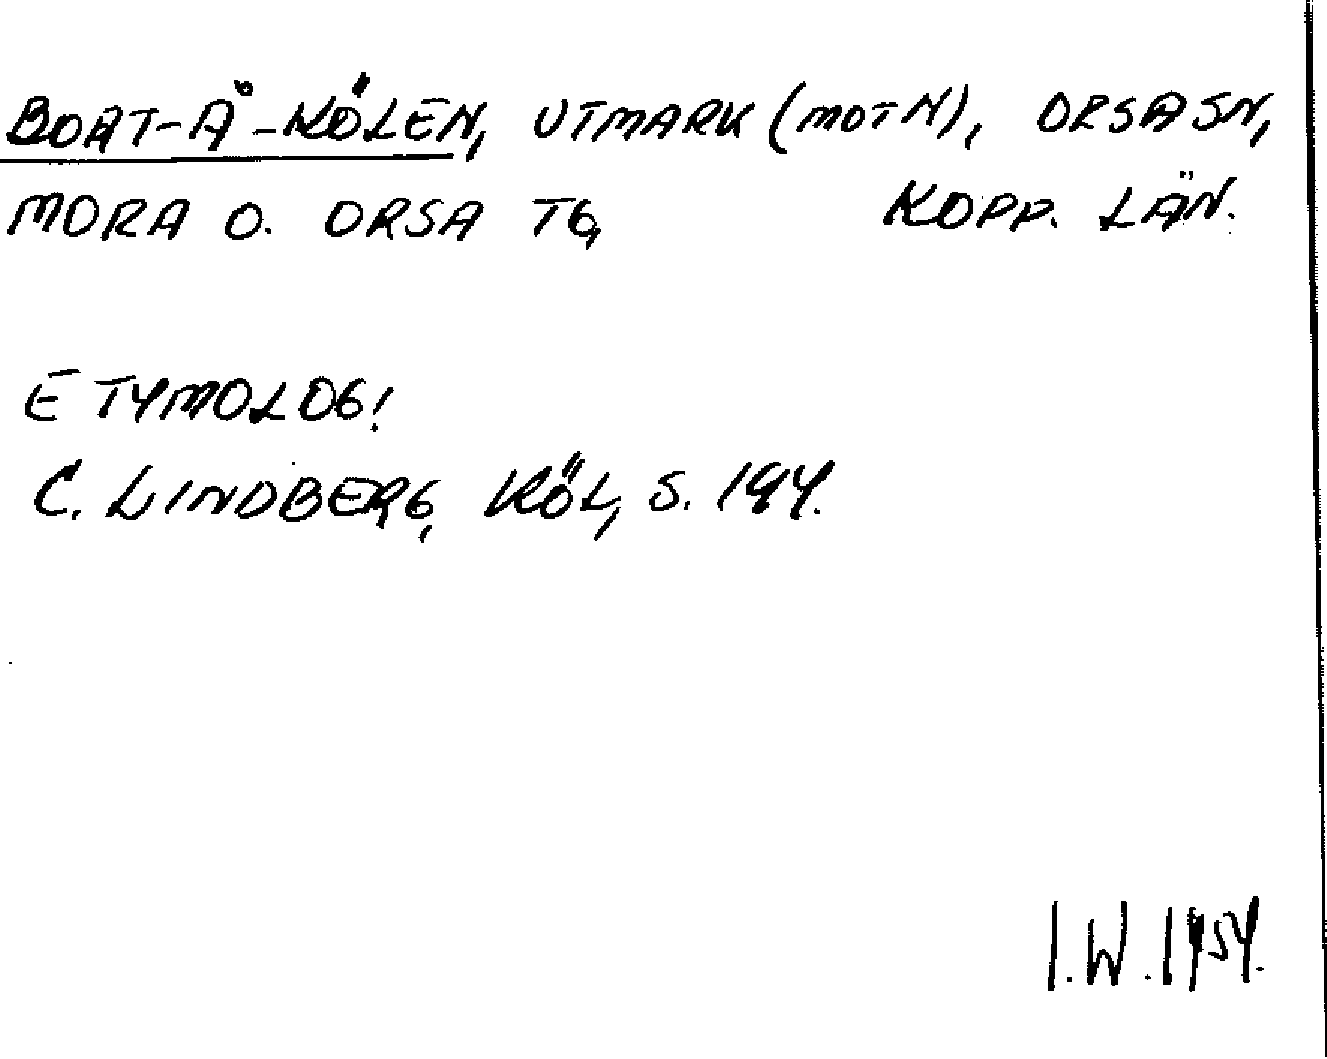 BOAT-Å-KÖLEN, UTMARK (MOT N), ORSA SN,
MORA O. ORSA TG, KOPP. LÄN.
ETYMOLOG!
C. LINDBERG, KÖL, S. 194.
I.W. 1954.